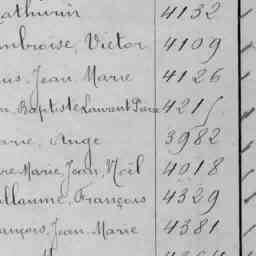 Mathurin 4132
Ambroise, Victor 4109
Jean Marie 4126
Baptiste Laurent Pierre 4215
Marie, Ange 3982
Marie, Jean, Noël 4018
Guillaume, François 4329
François, Jean, Marie 4381